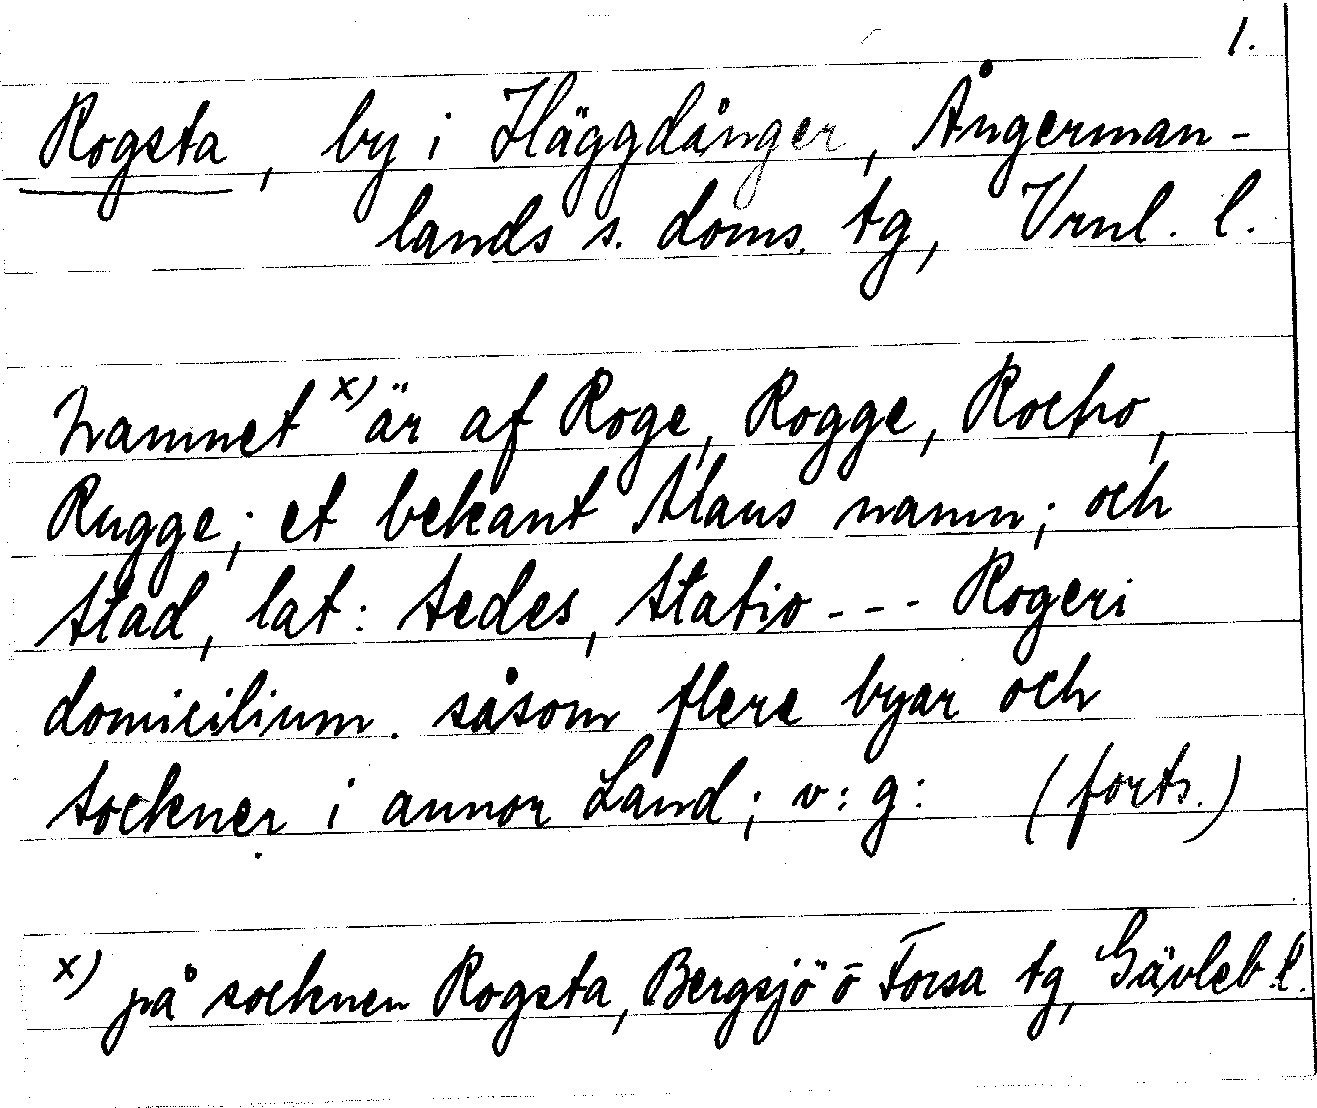 1.
Rogsta, by i Häggdånger, Ångerman-
lands s. doms. tg, Vrnl. l.
Namnet x) är af Roge, Rogge, Rocho,
Rugge; et bekant Mans namn; och
Stad, lat: Sedes, Statio - - - Rogeri
domicilium. såsom flere byar och
Sockner i annor Land; v: g: (forts.)
x) på socknen Rogsta, Bergsjö o Forsa tg, Gävleb. l.